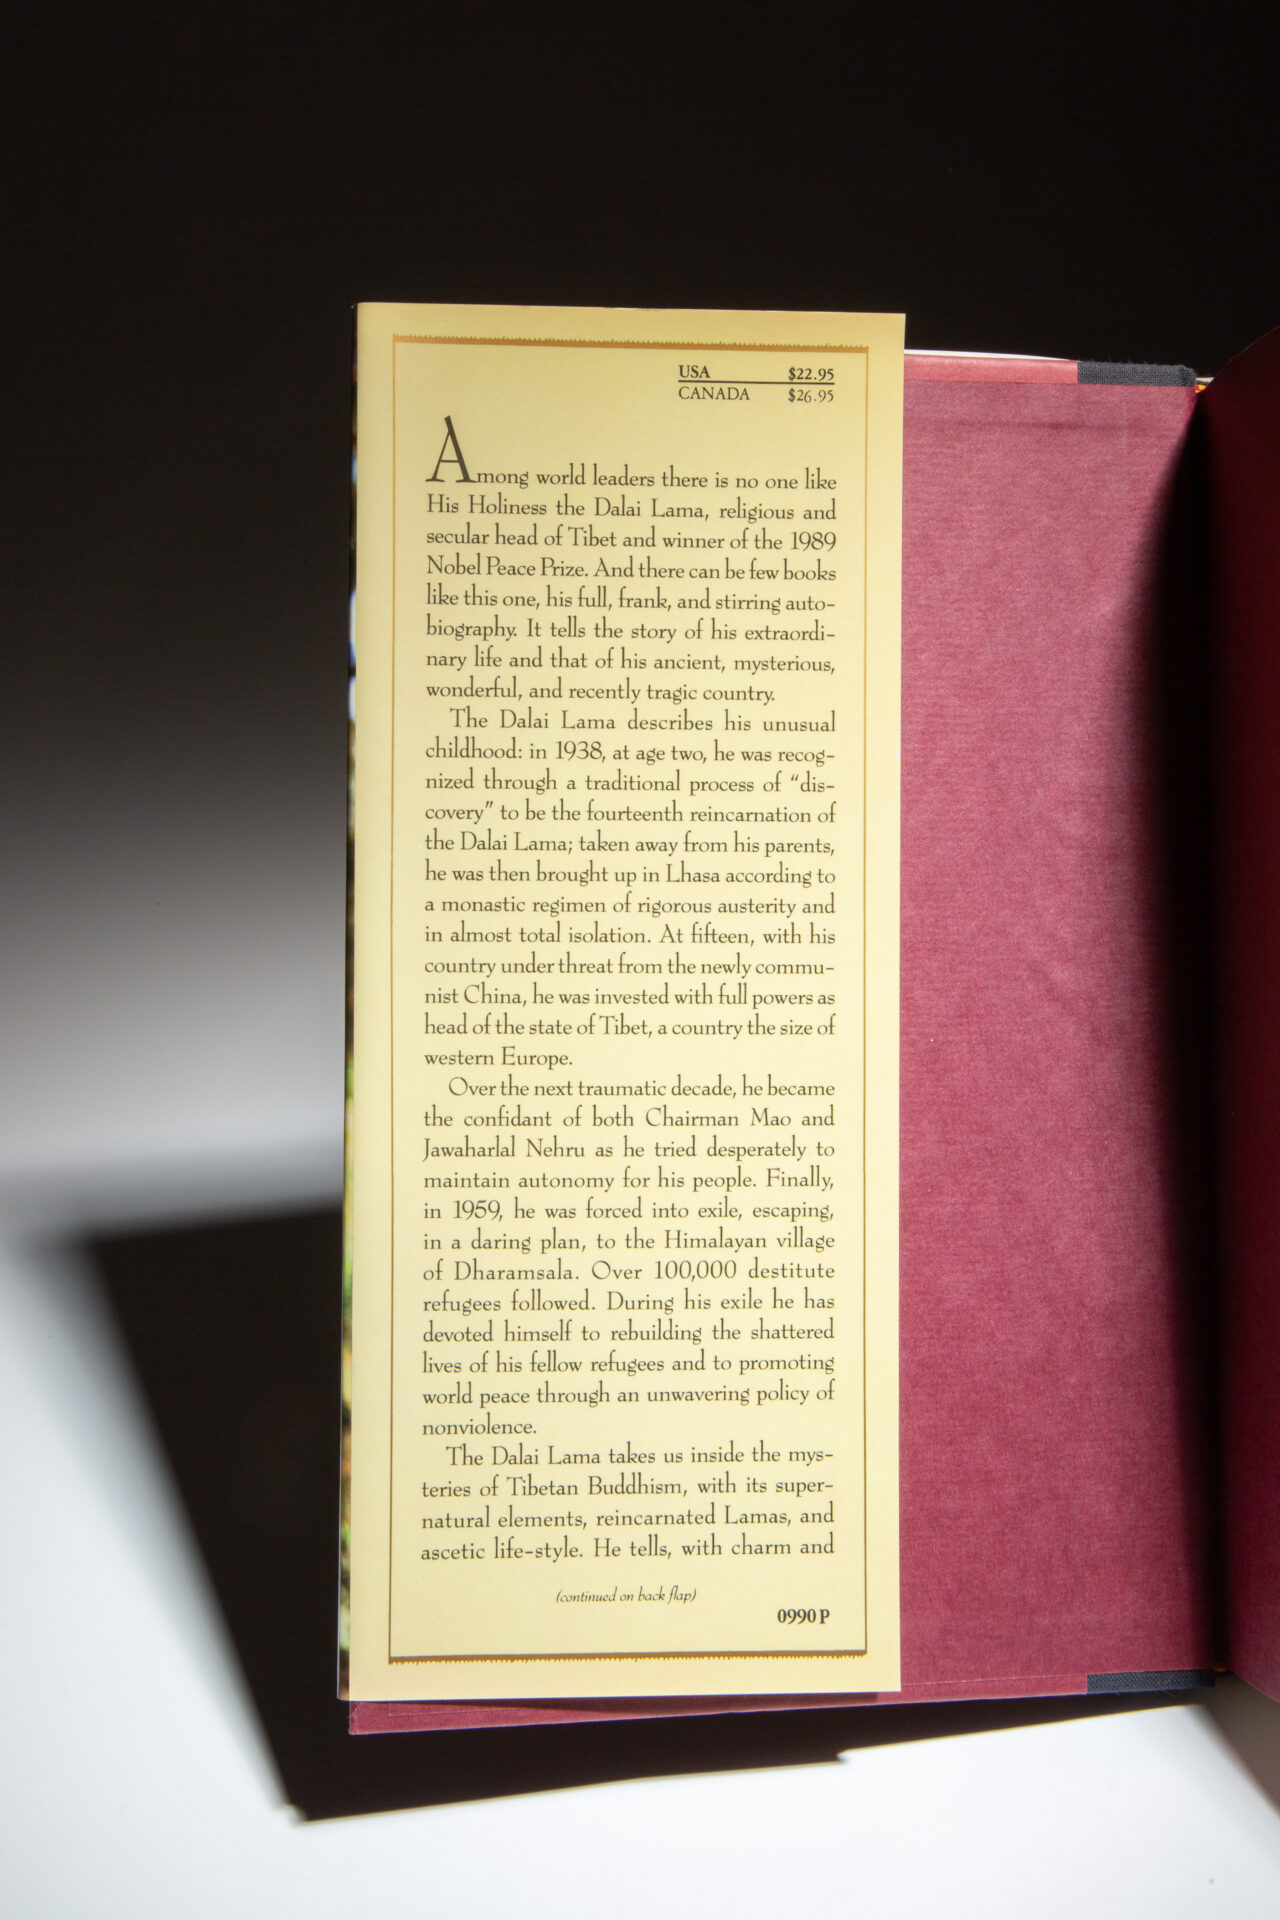 USA $22.95
CANADA $26.95
Among world leaders there is no one like
His Holiness the Dalai Lama, religious and
secular head of Tibet and winner of the 1989
Nobel Peace Prize. And there can be few books
like this one, his full, frank, and stirring auto-
biography. It tells the story of his extraordi-
nary life and that of his ancient, mysterious,
wonderful, and recently tragic country.
The Dalai Lama describes his unusual
childhood: in 1938, at age two, he was recog-
nized through a traditional process of "dis-
covery" to be the fourteenth reincarnation of
the Dalai Lama; taken away from his parents,
he was then brought up in Lhasa according to
a monastic regimen of rigorous austerity and
in almost total isolation. At fifteen, with his
country under threat from the newly commu-
nist China, he was invested with full powers as
head of the state of Tibet, a country the size of
western Europe.
Over the next traumatic decade, he became
the confidant of both Chairman Mao and
Jawaharlal Nehru as he tried desperately to
maintain autonomy for his people. Finally,
in 1959, he was forced into exile, escaping,
in a daring plan, to the Himalayan village
of Dharamsala. Over 100,000 destitute
refugees followed. During his exile he has
devoted himself to rebuilding the shattered
lives of his fellow refugees and to promoting
world peace through an unwavering policy of
nonviolence.
The Dalai Lama takes us inside the mys-
teries of Tibetan Buddhism, with its super-
natural elements, reincarnated Lamas, and
ascetic life-style. He tells, with charm and
(continued on back flap)
0990 P